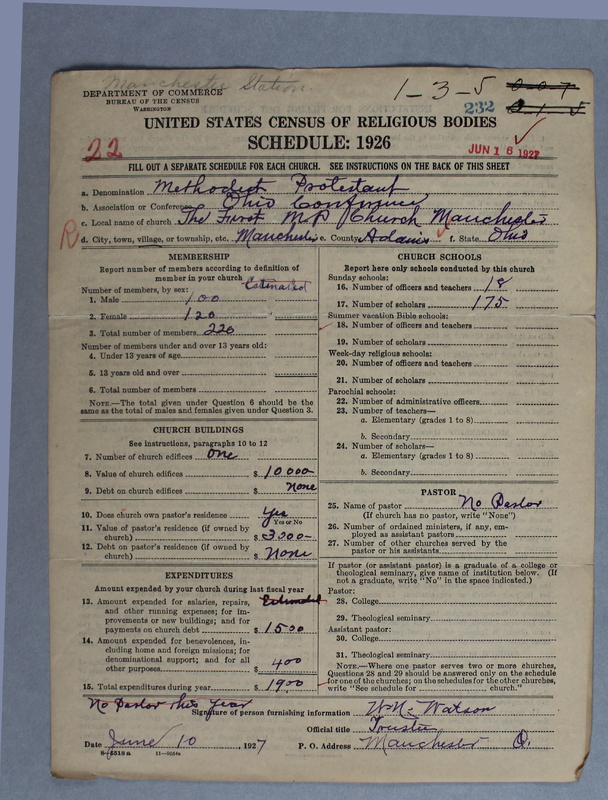 Manchester Station.
DEPARTMENT OF COMMERCE
BUREAU OF THE CENSUS
WASHINGTON
1-3-5
232
UNITED STATES CENSUS OF RELIGIOUS BODIES
SCHEDULE: 1926
22
JUN 16 1927
FILL OUT A SEPARATE SCHEDULE FOR EACH CHURCH. SEE INSTRUCTIONS ON THE BACK OF THIS SHEET
a. Denomination Methodist Protestant
b. Association or Conference Ohio Conference
c. Local name of church The First M.P. Church Manchester
R d. City, town, village, or township, etc. Manchester e. County Adams f. State Ohio
MEMBERSHIP
Report number of members according to definition of member in your church Estimated
Number of members, by sex:
1. Male 100
2. Female 120
3. Total number of members 220
Number of members under and over 13 years old:
4. Under 13 years of age
5. 13 years old and over
6. Total number of members
NOTE.—The total given under Question 6 should be the same as the total of males and females given under Question 3.
CHURCH BUILDINGS
See instructions, paragraphs 10 to 12
7. Number of church edifices One
8. Value of church edifices $ 10000
9. Debt on church edifices $ None
10. Does church own pastor's residence? Yes
Yes or No
11. Value of pastor's residence (if owned by church) $ 3000-
12. Debt on pastor's residence (if owned by church) $ None
EXPENDITURES
Amount expended by your church during last fiscal year
13. Amount expended for salaries, repairs, and other running expenses; for improvements or new buildings; and for payments on church debt Estimated $ 1500
14. Amount expended for benevolences, including home and foreign missions; for denominational support; and for all other purposes $ 400
15. Total expenditures during year $ 1900
CHURCH SCHOOLS
Report here only schools conducted by this church
Sunday schools:
16. Number of officers and teachers 18
17. Number of scholars 175
Summer vacation Bible schools:
18. Number of officers and teachers
19. Number of scholars
Week-day religious schools:
20. Number of officers and teachers
21. Number of scholars
Parochial schools:
22. Number of administrative officers
23. Number of teachers—
a. Elementary (grades 1 to 8)
b. Secondary
24. Number of scholars—
a. Elementary (grades 1 to 8)
b. Secondary
PASTOR
25. Name of pastor No Pastor
(If church has no pastor, write "None")
26. Number of ordained ministers, if any, employed as assistant pastors
27. Number of other churches served by the pastor or his assistants
If pastor (or assistant pastor) is a graduate of a college or theological seminary, give name of institution below. (If not a graduate, write "No" in the space indicated.)
Pastor:
28. College
29. Theological seminary
Assistant pastor:
30. College
31. Theological seminary
NOTE.—Where one pastor serves two or more churches, Questions 28 and 29 should be answered only on the schedule for one of the churches; on the schedules for the other churches, write "See schedule for church."
No Pastor this year
Signature of person furnishing information W. N. Watson
Official title Trustee
Date June 10, 1927
P. O. Address Manchester O.
8-5518a 11-9264a